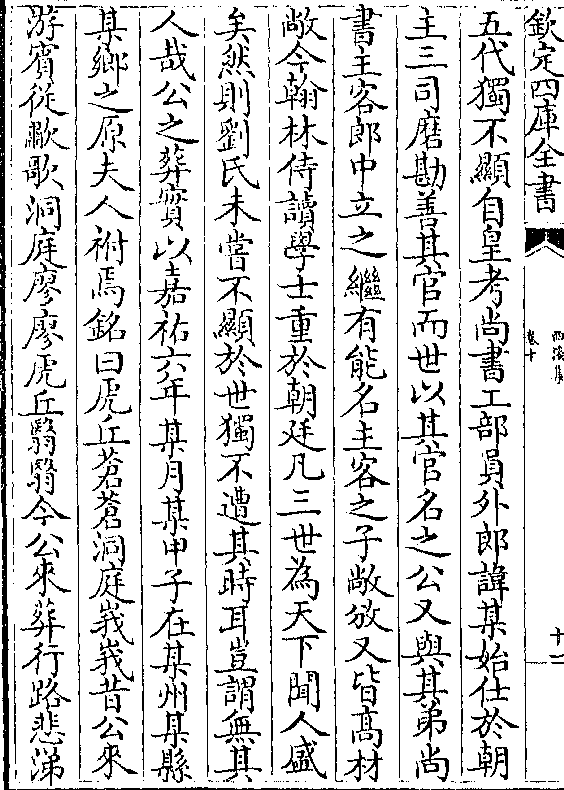 欽定四庫全書
西溪集
卷十
十一
五代獨不顯自皇考尚書工部員外郎諱某始仕於朝
主三司磨勘善其官而世以其官名之公又與其弟尚
書主客郎中立之繼有能名主客之子敞攽又皆髙材
敞今翰林侍讀學士重於朝廷凡三世為天下聞人盛
矣然則劉氏未嘗不顯於世獨不遭其時耳豈謂無其
人哉公之葬實以嘉祐六年某月某甲子在某州某縣
其鄉之原夫人祔焉銘曰虎丘蒼蒼洞庭峩峩昔公來
游賓從歗歌洞庭廖廖虎丘翳翳今公來葬行路悲涕